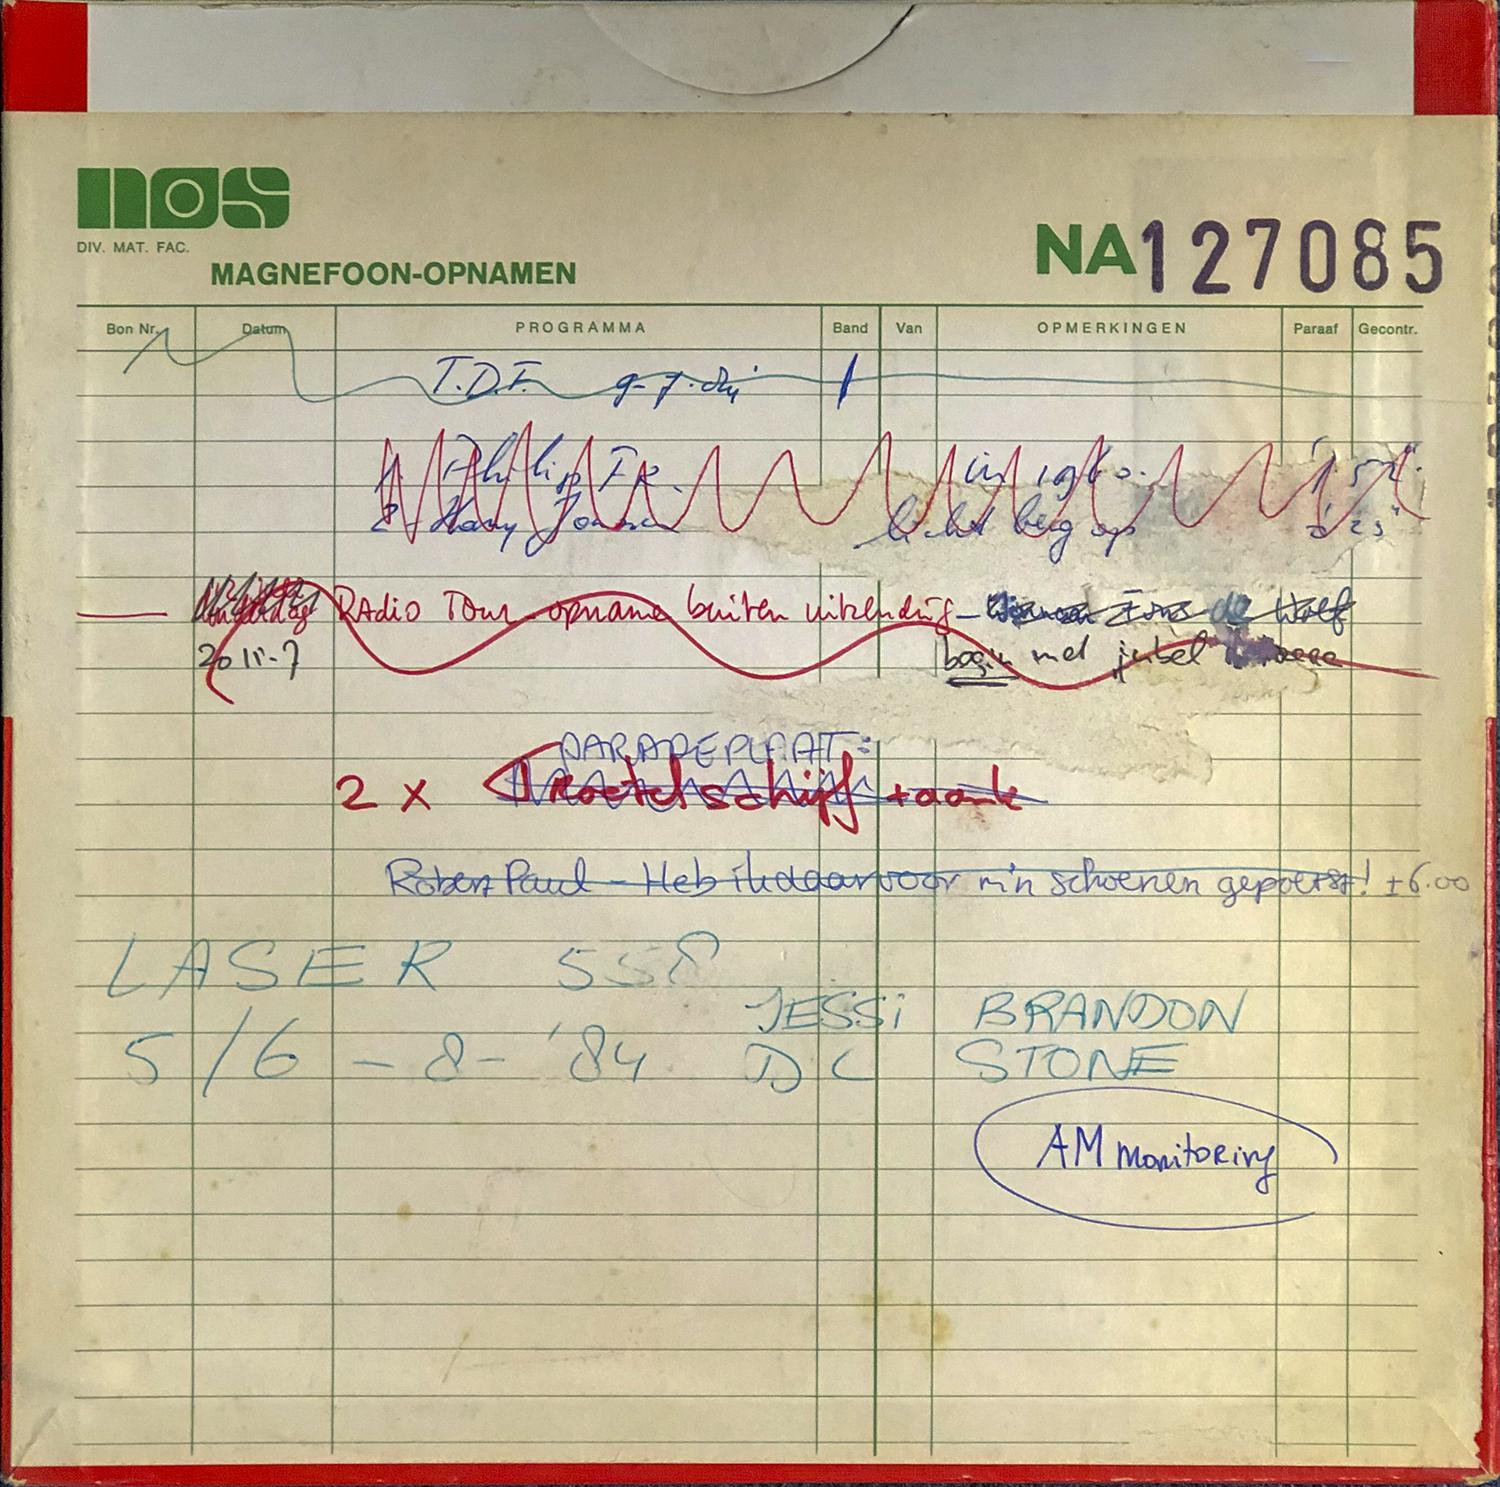 nos
DIV. MAT. FAC.
MAGNEFOON-OPNAMEN
NA127085
Bon Nr. Datum PROGRAMMA Band Van OPMERKINGEN Paraaf Gecontr.
T.D.F. 9-7
1 Philip Fr. in 1980. 1'52"
2 Harry licht berg op 2'23"
RAdio Tour opname buiten uitzending - de Wolf
20 begin met jubel
PARADEPLAAT:
2 x Troetelschijf + aank
Robert Paul - Heb ik daarvoor m'n schoenen gepoetst! ± 6.00
LASER 558
JESSi BRANDON
5/6 - 8 - '84 DC STONE
AM monitoring